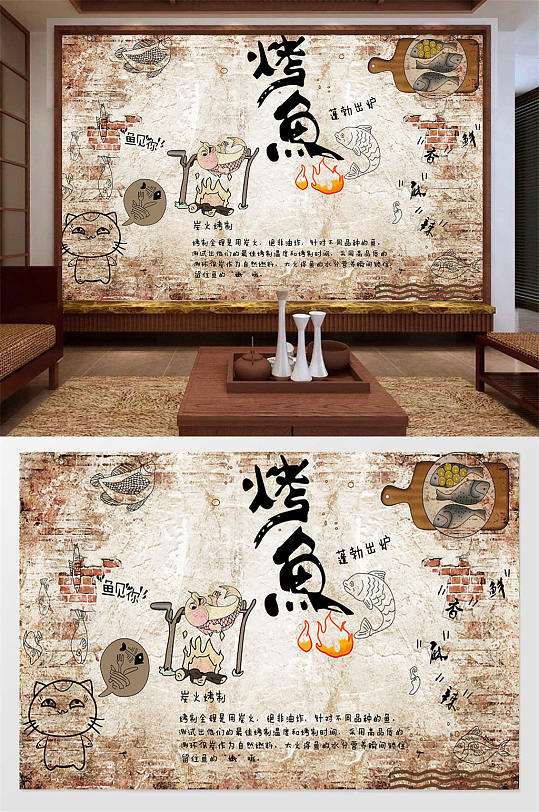 烤魚
蓬勃出炉
"鱼见你"
"鲜"
"香"
"麻"
"辣"
炭火烤制
烤制全程是用炭火，绝非油炸，针对不同品种的鱼，
测试出他们的最佳烤制温度和烤制时间，采用高品质的
环保炭作为自然燃料，大火保鱼的水分营养瞬间锁住
留住鱼的"嫩"哦。
烤魚
蓬勃出炉
"鱼见你"
"鲜"
"香"
"麻"
"辣"
炭火烤制
烤制全程是用炭火，绝非油炸，针对不同品种的鱼，
测试出他们的最佳烤制温度和烤制时间，采用高品质的
环保炭作为自然燃料，大火保鱼的水分营养瞬间锁住
留住鱼的"嫩"哦。